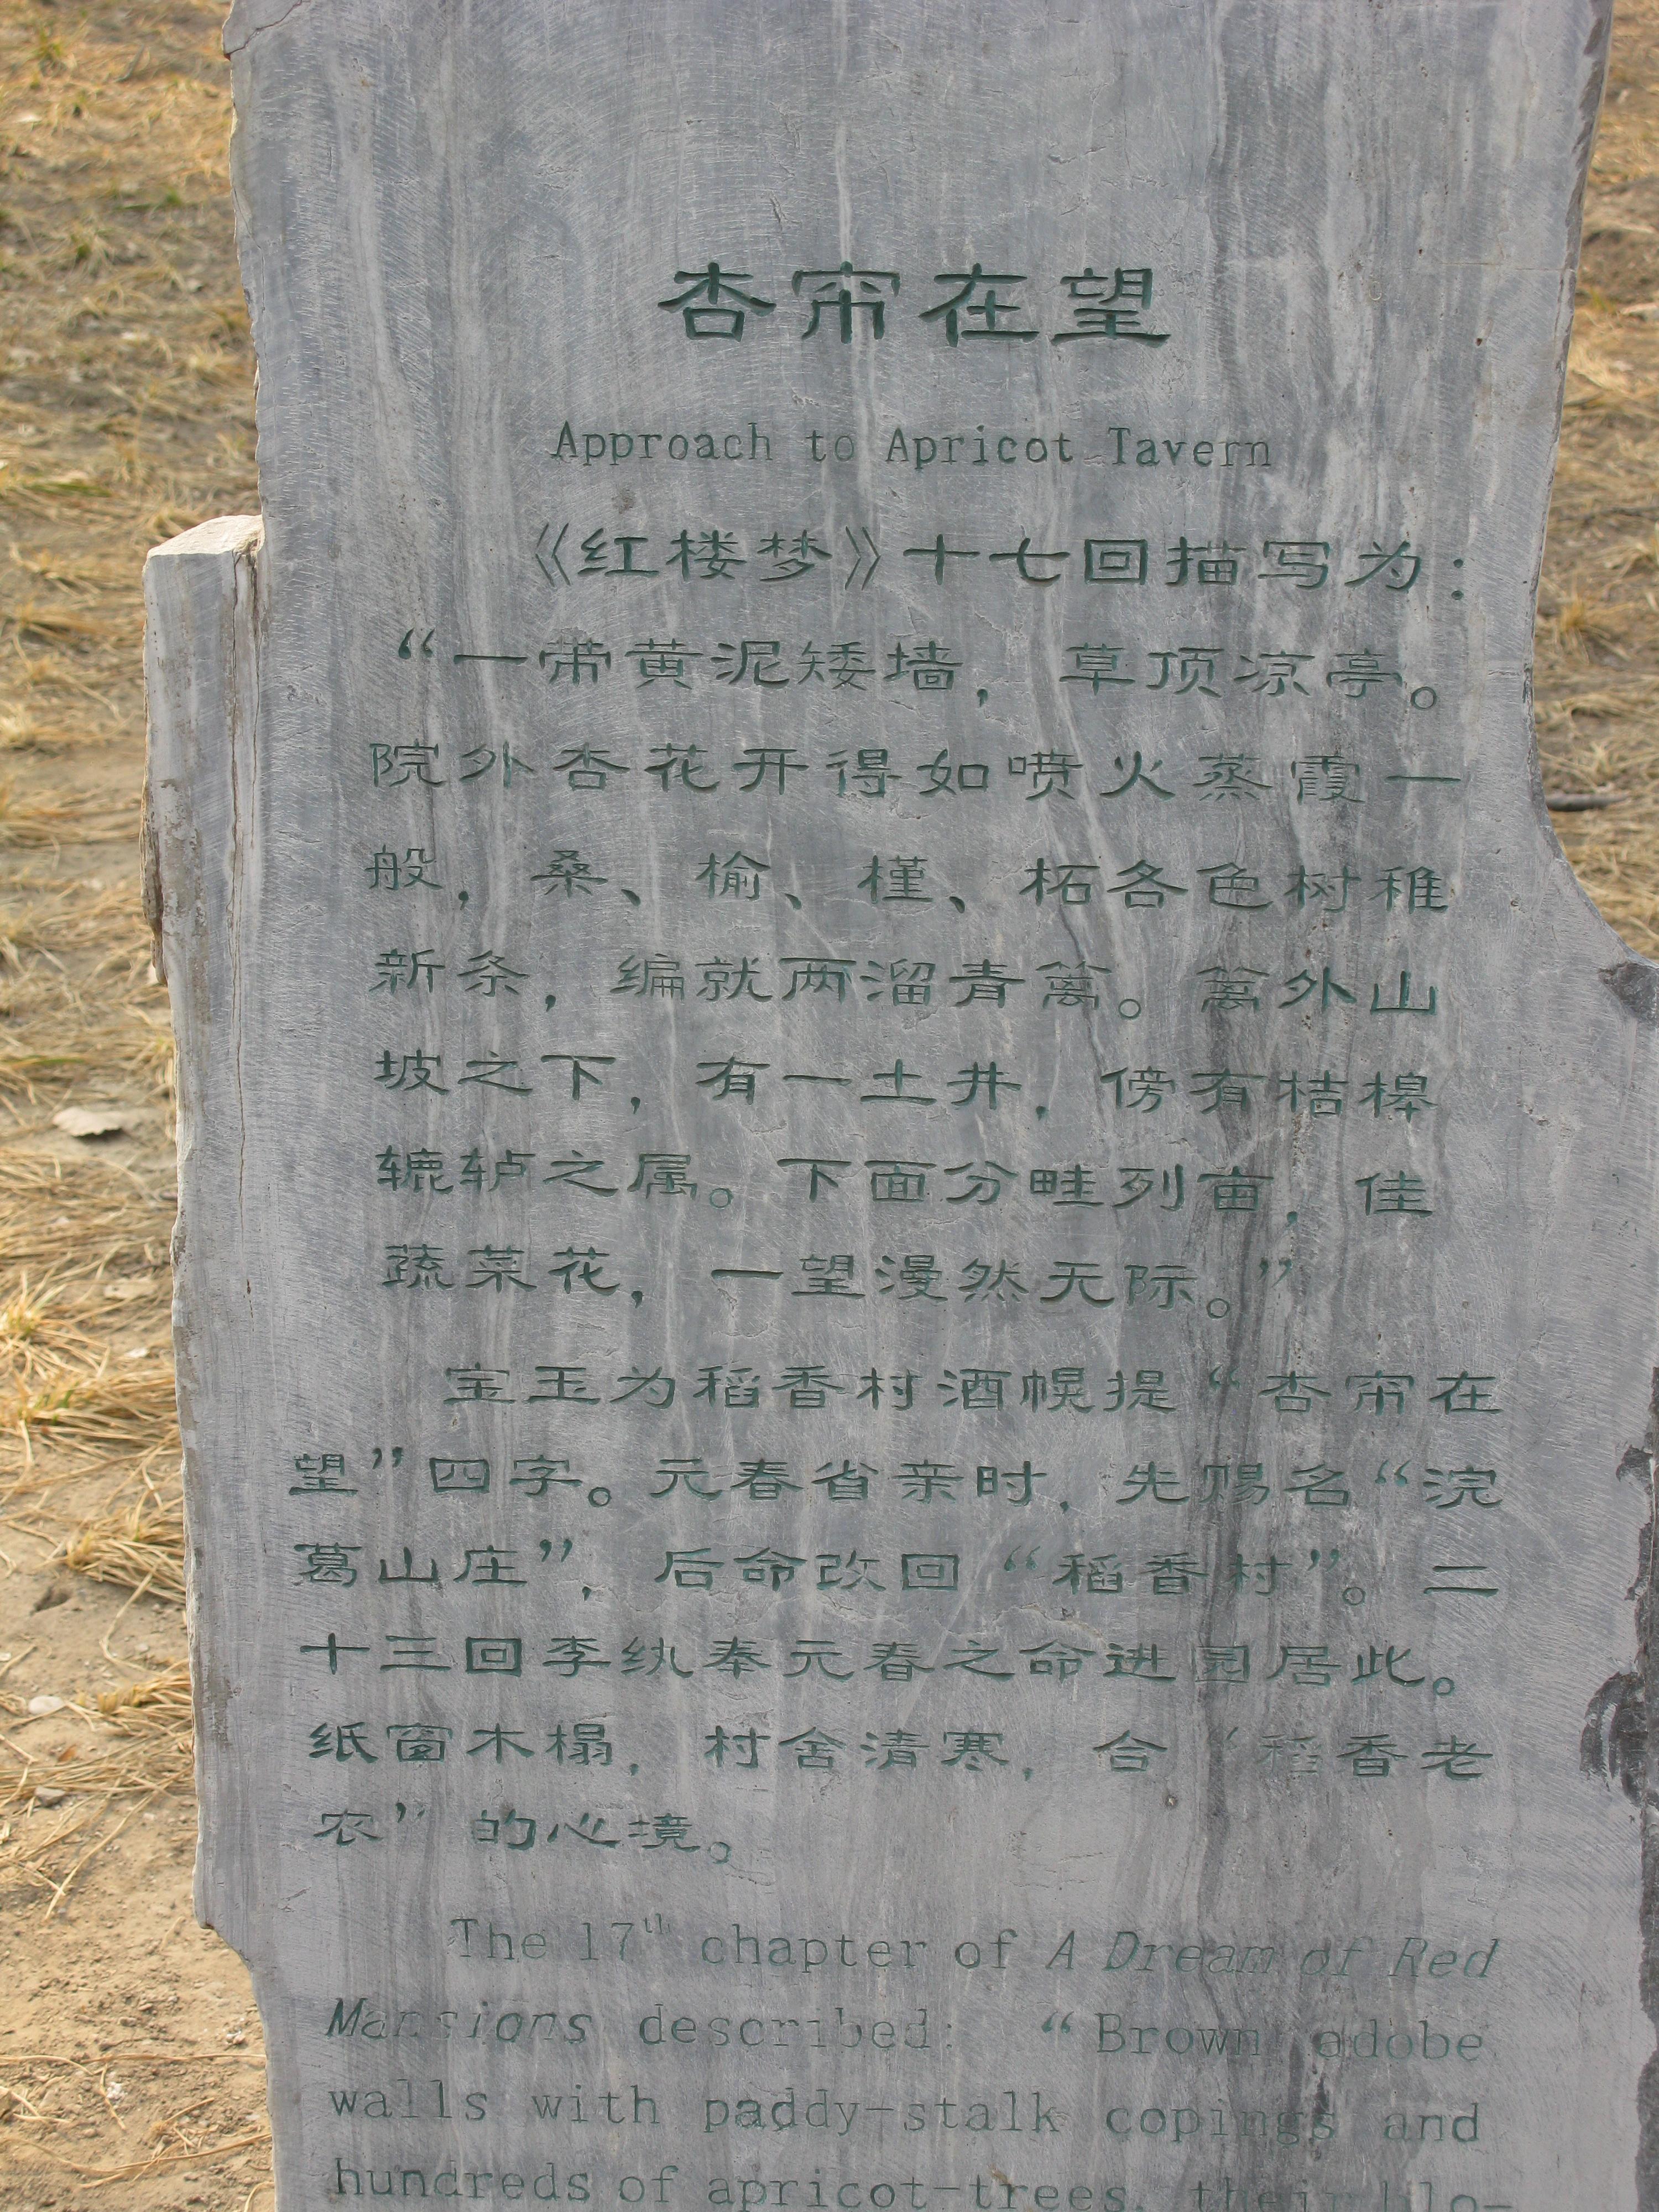 杏帘在望
Approach to Apricot Tavern
《红楼梦》十七回描写为：
“一带黄泥矮墙，草顶凉亭。
院外杏花开得如喷火蒸霞一
般，桑、榆、槿、柘各色树稚
新条，编就两溜青篱。篱外山
坡之下，有一土井，傍有桔槔
辘轳之属。下面分畦列亩，佳
蔬菜花，一望漫然无际。”
宝玉为稻香村酒幌提“杏帘在
望”四字。元春省亲时，先赐名“浣
葛山庄”，后命改回“稻香村”。二
十三回李纨奉元春之命进园居此。
纸窗木榻，村舍清寒，合“稻香老
农”的心境。
The 17th chapter of A Dream of Red
Mansions described: “Brown adobe
walls with paddy-stalk copings and
hundreds of apricot-trees, their blo-